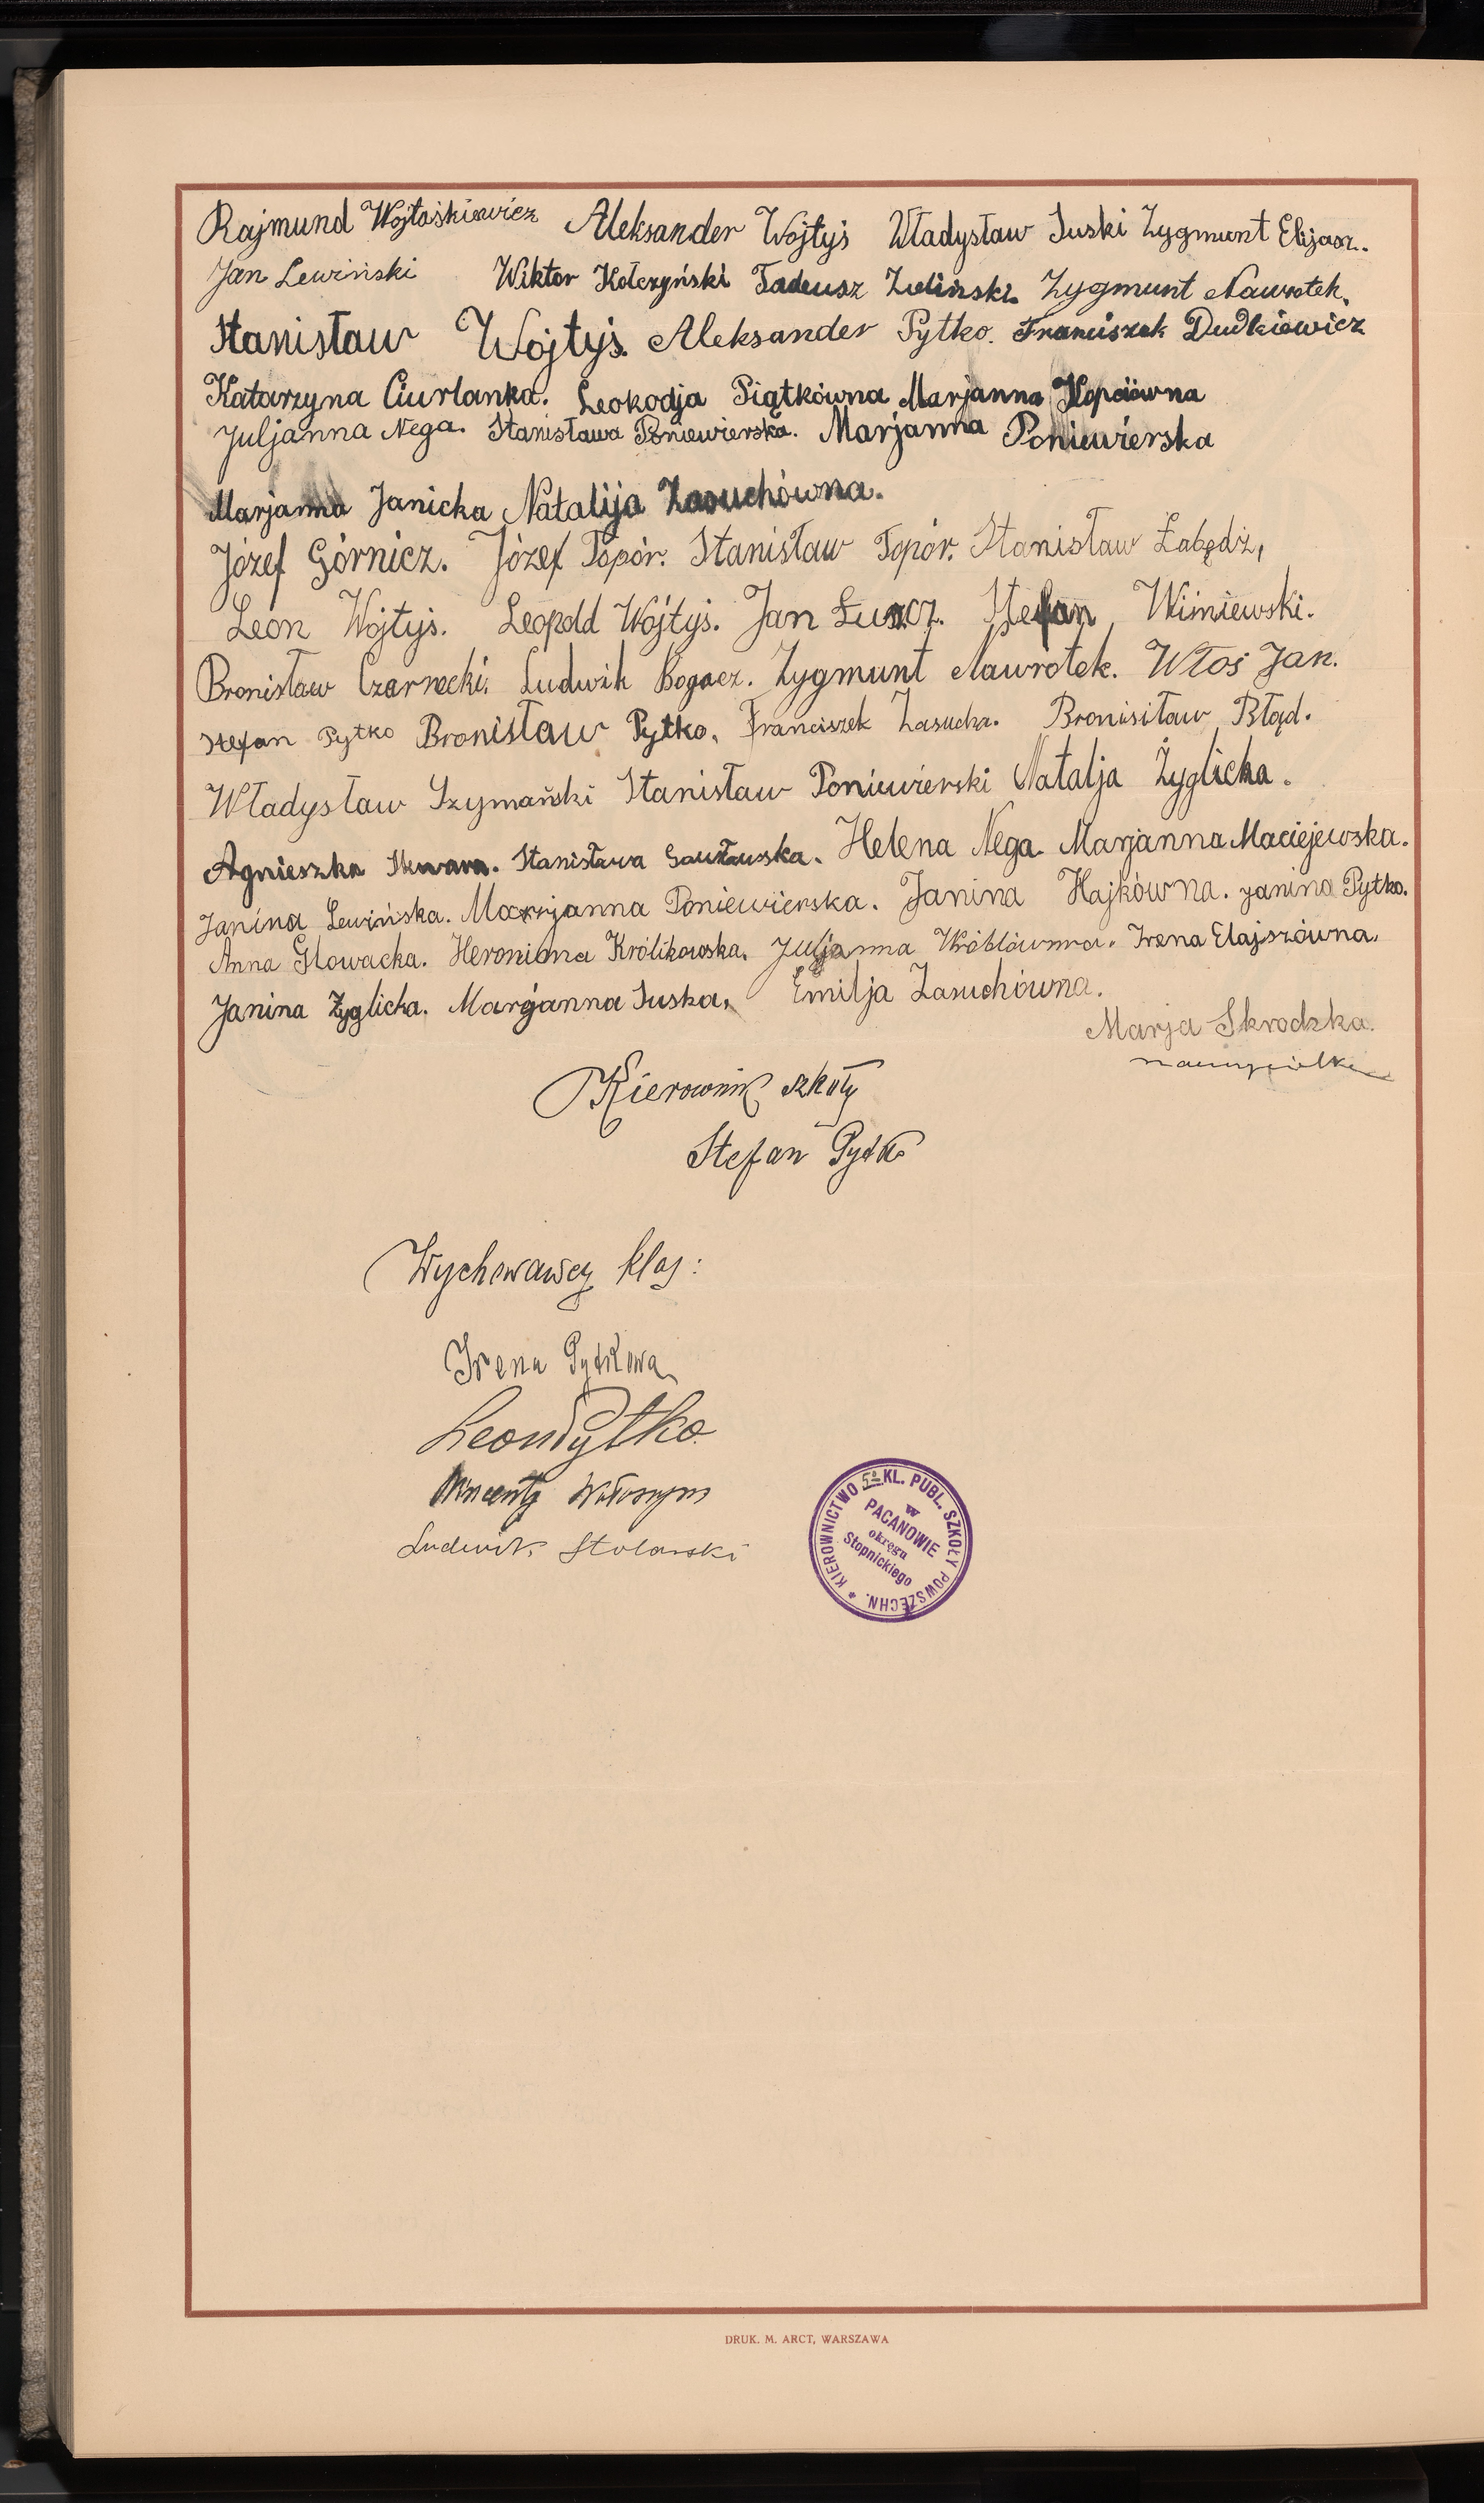 Rajmund Wojtaśkiewicz Aleksander Wojtyś Władysław Suski Zygmunt Elijasz..
Jan Lewiński Wiktor Kołczyński Tadeusz Zieliński. Zygmunt Nawrotek.
Stanisław Wojtyś. Aleksander Pytko. Franciszek Dudkiewicz
Katarzyna Ciurlanka. Leokodja Piątkówna Marjanna Kopciówna
Juljanna Nega. Stanisława Poniewierska. Marjanna Poniewierska
Marjanna Janicka Natalija Zasuchówna.
Józef Górnicz. Józef Topór. Stanisław Topór. Stanisław Łabędź,
Leon Wojtyś. Leopold Wójtyś. Jan Łuszcz. Stefan Wiśniewski.
Bronisław Czarnecki. Ludwik Bogacz. Zygmunt Nawrotek. Włoś Jan.
Stefan Pytko Bronisław Pytko, Franciszek Zasucha. Bronisitaw Błąd.
Władysław Szymański Stanisław Poniewierski Natalja Żyglicka.
Agnieszka Stanisława Helena Nega. Marjanna Maciejewska.
Janina Lewińska. Marjanna Poniewierska. Janina Hajkówna. Janina Pytko.
Anna Głowacka. Heronima Królikowska. Juljanna Wróblówna. Irena Elajszówna.
Janina Żyglicka. Marjanna Suska. Emilja Zasuchówna.
Marja Skrodzka.
nauczycielka
Kierownik szkoły
Stefan Pytko
Wychowawcy klas:
Irena Pytkowa
Leon Pytko.
Wincenty
Ludwik Stolarski
KIEROWNICTWO 5º KL. PUBL. SZKOŁY POWSZECHN. *
w
PACANOWIE
okręgu
Stopnickiego
DRUK. M. ARCT, WARSZAWA